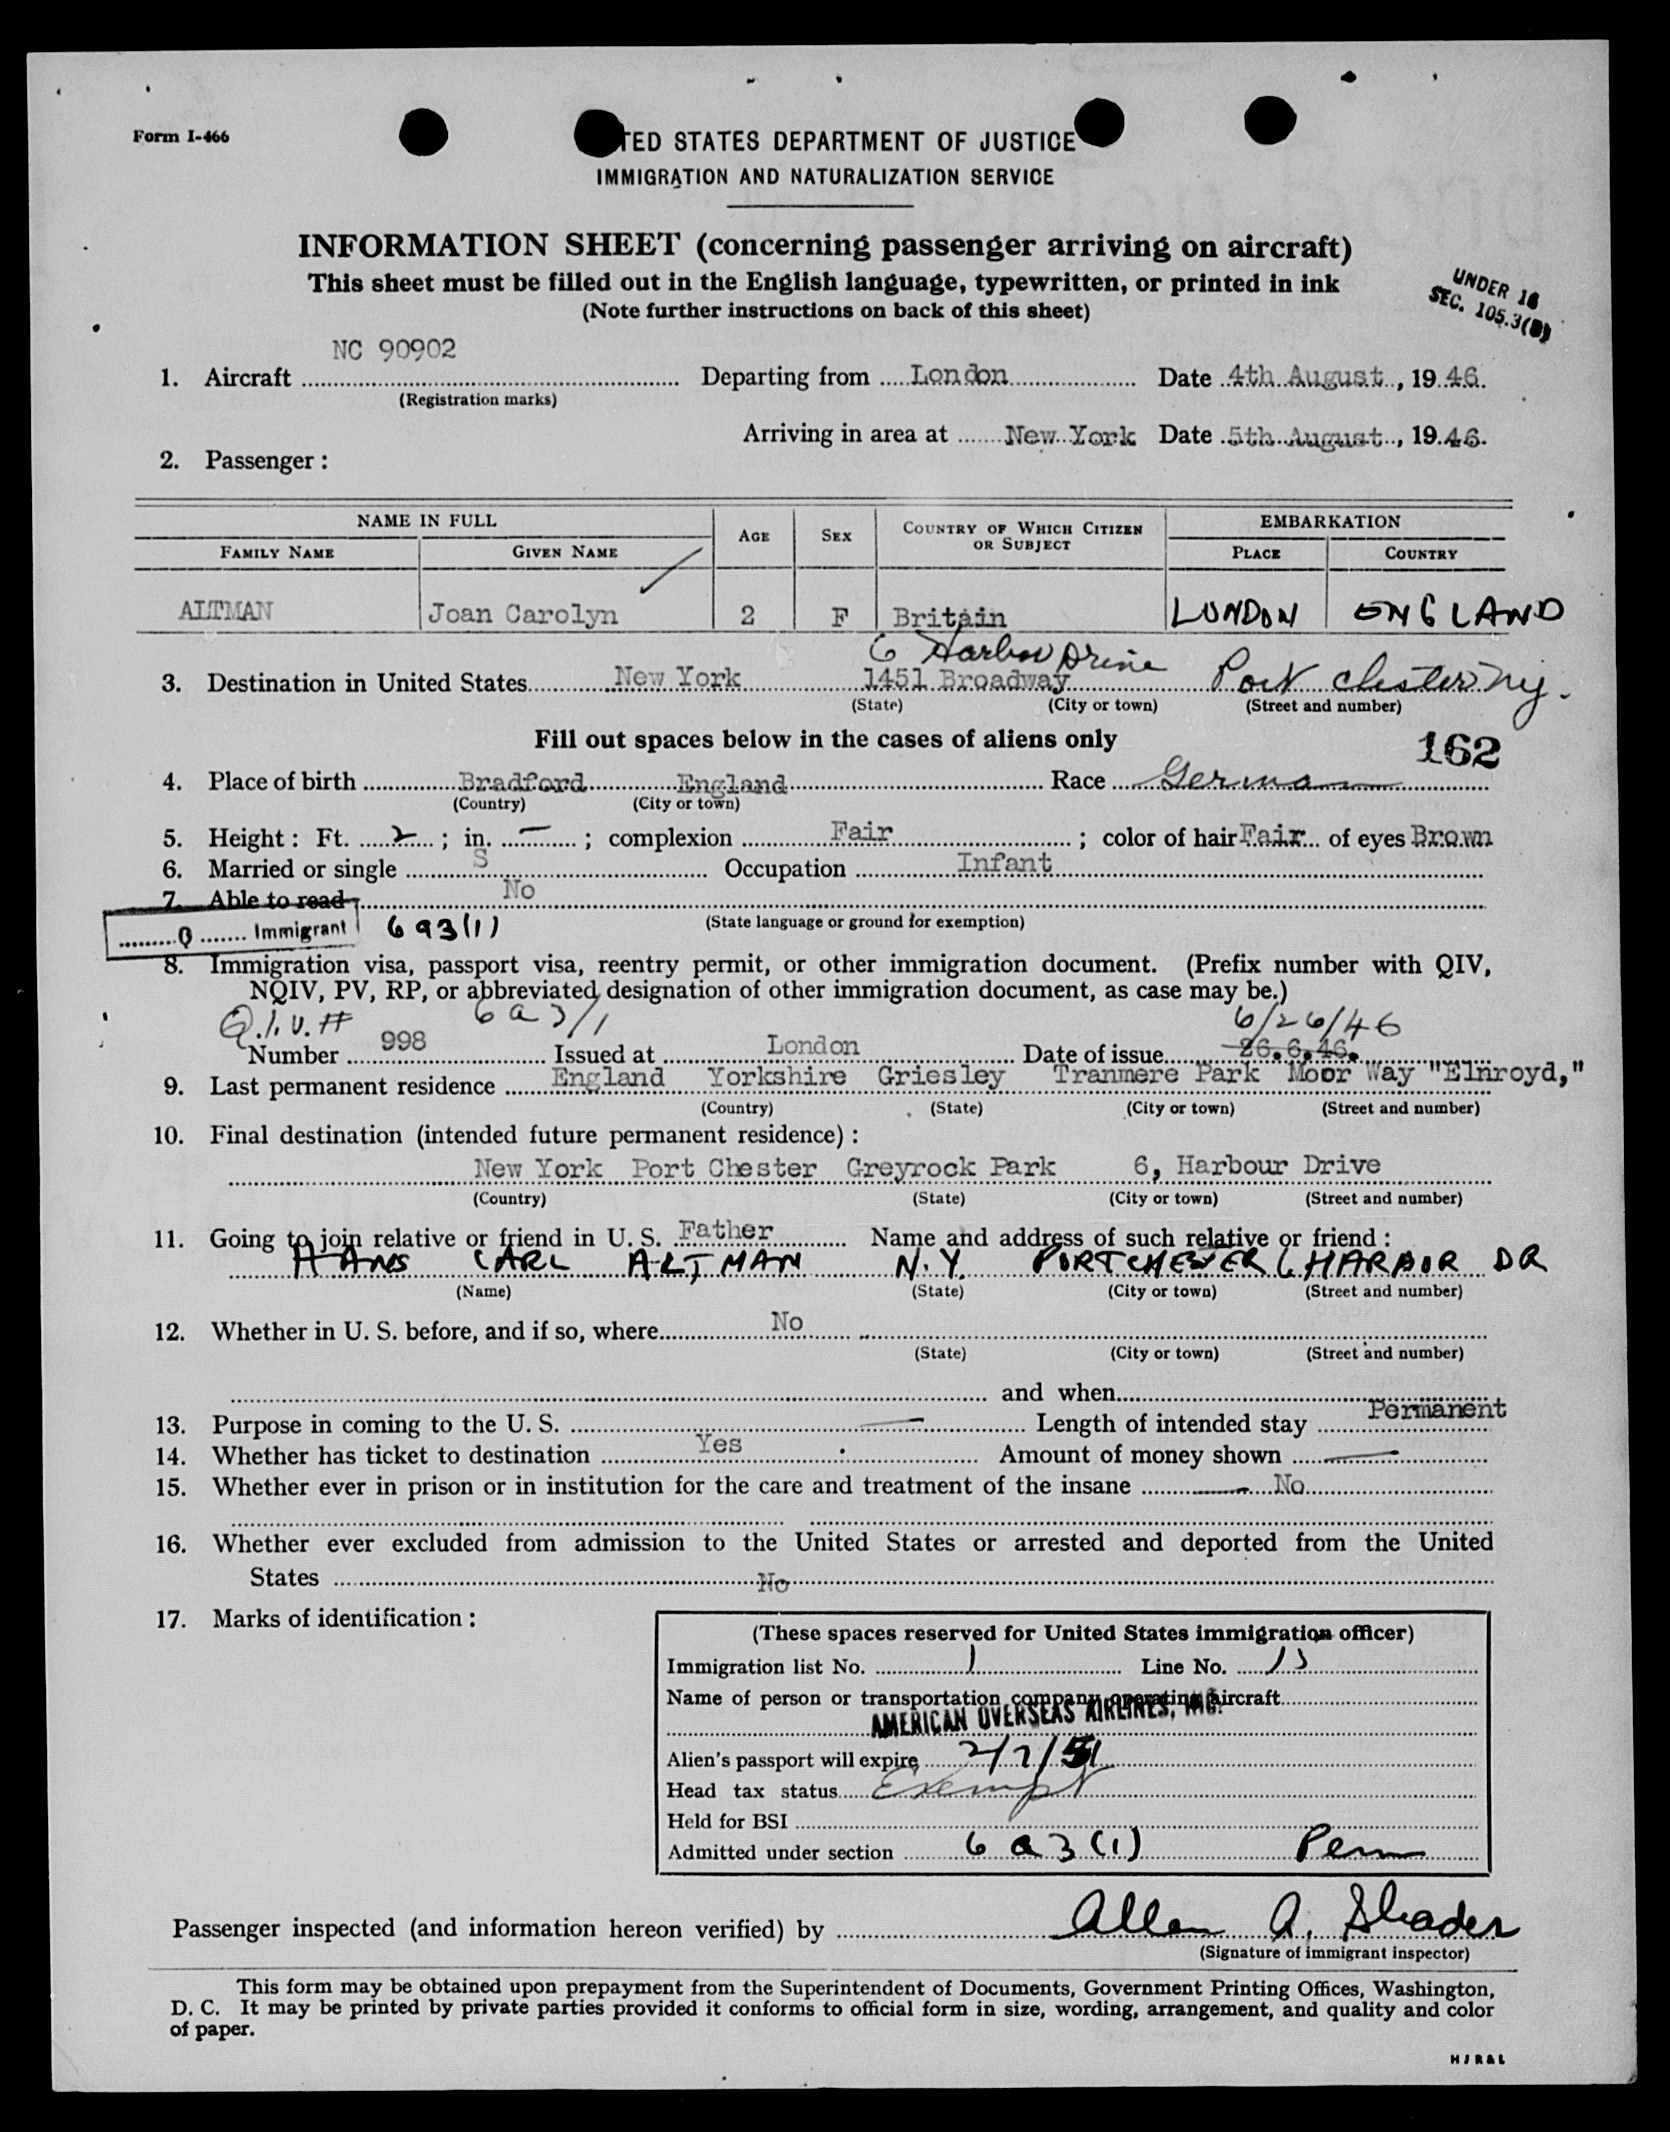 Form I-466
TED STATES DEPARTMENT OF JUSTICE
IMMIGRATION AND NATURALIZATION SERVICE
INFORMATION SHEET (concerning passenger arriving on aircraft)
This sheet must be filled out in the English language, typewritten, or printed in ink
(Note further instructions on back of this sheet)
UNDER 16
SEC. 105.3(B)
NC 90902
1. Aircraft Departing from London Date 4th August, 19 46.
(Registration marks)
Arriving in area at New York Date 5th August, 19 46.
2. Passenger :
NAME IN FULL AGE SEX COUNTRY OF WHICH CITIZEN OR SUBJECT EMBARKATION
FAMILY NAME GIVEN NAME PLACE COUNTRY
ALTMAN Joan Carolyn 2 F Britain LONDON ENGLAND
6 Harbor Drive
3. Destination in United States New York 1451 Broadway Port Chester NY.
(State) (City or town) (Street and number)
Fill out spaces below in the cases of aliens only
162
4. Place of birth Bradford England Race German
(Country) (City or town)
5. Height : Ft. 2 ; in. — ; complexion Fair ; color of hair Fair of eyes Brown
6. Married or single S Occupation Infant
7. Able to read No
(State language or ground for exemption)
Q Immigrant 6 a 3 (1)
8. Immigration visa, passport visa, reentry permit, or other immigration document. (Prefix number with QIV,
NQIV, PV, RP, or abbreviated designation of other immigration document, as case may be.)
Q.I.V. # 6 a 3/1 6/26/46
Number 998 Issued at London Date of issue 26.6.46.
9. Last permanent residence England Yorkshire Griesley Tranmere Park Moor Way "Elnroyd,"
(Country) (State) (City or town) (Street and number)
10. Final destination (intended future permanent residence) :
New York Port Chester Greyrock Park 6, Harbour Drive
(Country) (State) (City or town) (Street and number)
11. Going to join relative or friend in U. S. Father Name and address of such relative or friend :
HANS CARL ALTMAN N.Y. PORTCHESTER 6 HARBOR DR
(Name) (State) (City or town) (Street and number)
12. Whether in U. S. before, and if so, where No
(State) (City or town) (Street and number)
and when
13. Purpose in coming to the U. S. — Length of intended stay Permanent
14. Whether has ticket to destination Yes Amount of money shown —
15. Whether ever in prison or in institution for the care and treatment of the insane No
16. Whether ever excluded from admission to the United States or arrested and deported from the United
States No
17. Marks of identification :
(These spaces reserved for United States immigration officer)
Immigration list No. 1 Line No. 13
Name of person or transportation company operating aircraft
AMERICAN OVERSEAS AIRLINES, INC.
Alien's passport will expire 2/7/51
Head tax status Exempt
Held for BSI
Admitted under section 6 a 3 (1) Perm
Passenger inspected (and information hereon verified) by Allen A. Shader
(Signature of immigrant inspector)
This form may be obtained upon prepayment from the Superintendent of Documents, Government Printing Offices, Washington,
D. C. It may be printed by private parties provided it conforms to official form in size, wording, arrangement, and quality and color
of paper.
HJR&L